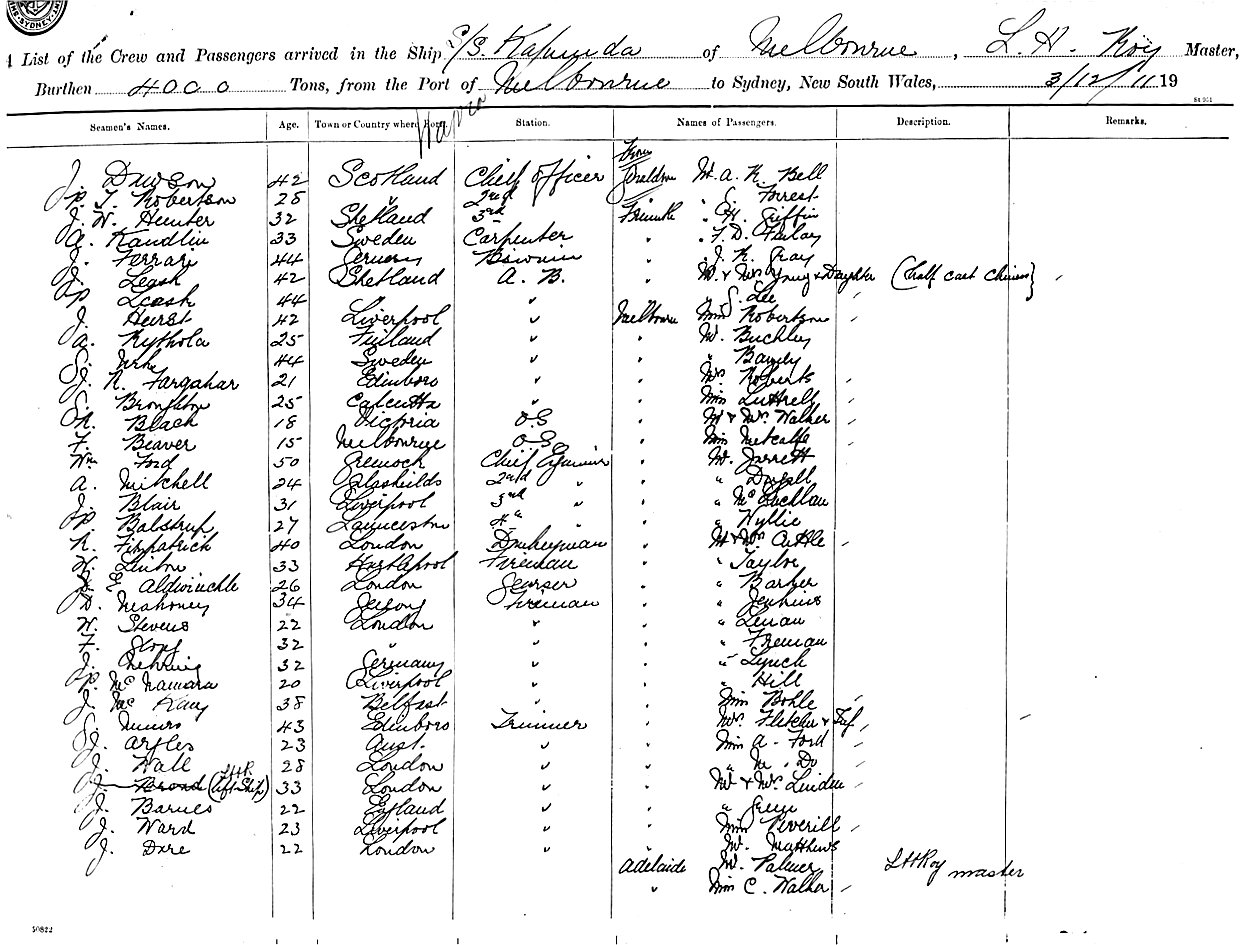 SYDNEY
List of the Crew and Passengers arrived in the Ship S/S. Kapunda of Melbourne, L. H. Roy Master,
Burthen 4000 Tons, from the Port of Melbourne to Sydney, New South Wales, 3/12/11 19
Seamen's Names. Age. Town or Country where Born. Station. Names of Passengers. Description. Remarks.
From
J. Dawson 42 Scotland Chief Officer Geraldton Mr. A. R. Bell
P. T. Robertson 28 " 2nd " S. Forrest
J. W. Hunter 32 Shetland 3rd Frmtle " H. Griffin
A. Kandlin 33 Sweden Carpenter " " F. D. Finlay
J. Ferrari 44 " " J. K. Gray
J. Leash 42 Shetland A. B. " Mr. & Mrs Young & Daughter (half cast chinese)
P. Leash 44 " " " S. Lee
J. Hurst 42 Liverpool " Melbourne Miss Robertson
A. Kythola 25 Finland " " Mr. Buckley
S. 44 Sweden " " "
J. R. Farqahar 21 Edinboro " " Mrs Roberts
S. Broughton 25 Calcutta " " Miss Luttrell
R. Black 18 Victoria O.S " Mr & Mrs. Walker
F. Beaver 15 Melbourne O.S. " Miss Metcalfe
Wm Ford 50 Greenock Chief Engineer " Mr. Jarrett
A. Mitchell 24 Galashields 2nd " " "
J. Blair 31 Liverpool 3rd " " " McLachlan
P. Balstrup 27 Launceston 4th " " " Wyllie
R. Fitzpatrick 40 London Dnkeyman " Mr & Mrs Cuttle
W. Linton 33 Hartlepool Fireman " " Taylor
E. Aldwinckle 26 London Greaser " " Barker
D. Mahoney 34 Jersey Fireman " " Jenkins
W. Stevens 22 London " " " Lenan
F. 32 " " " Freeman
J. Nehring 32 Germany " " " Lynch
P. McNamara 20 Liverpool " " " Hill
J. McKay 38 Belfast " " Miss Bohle
S. Munro 43 Edinboro Trimmer " Mrs. Fletcher & Inf,
J. Argles 23 Aust. " " Miss A. Ford
J. Wall 28 London " " " M. Do
J. Broad (left ship) LHR 33 London " " Mr & Mrs Linden
J. Barnes 22 England " " " Green
J. Ward 23 Liverpool " " Miss Peverill
J. Dare 22 London " " Mr. Matthews
Adelaide Mr. Palmer LHRoy master
" Miss C. Walker
50822